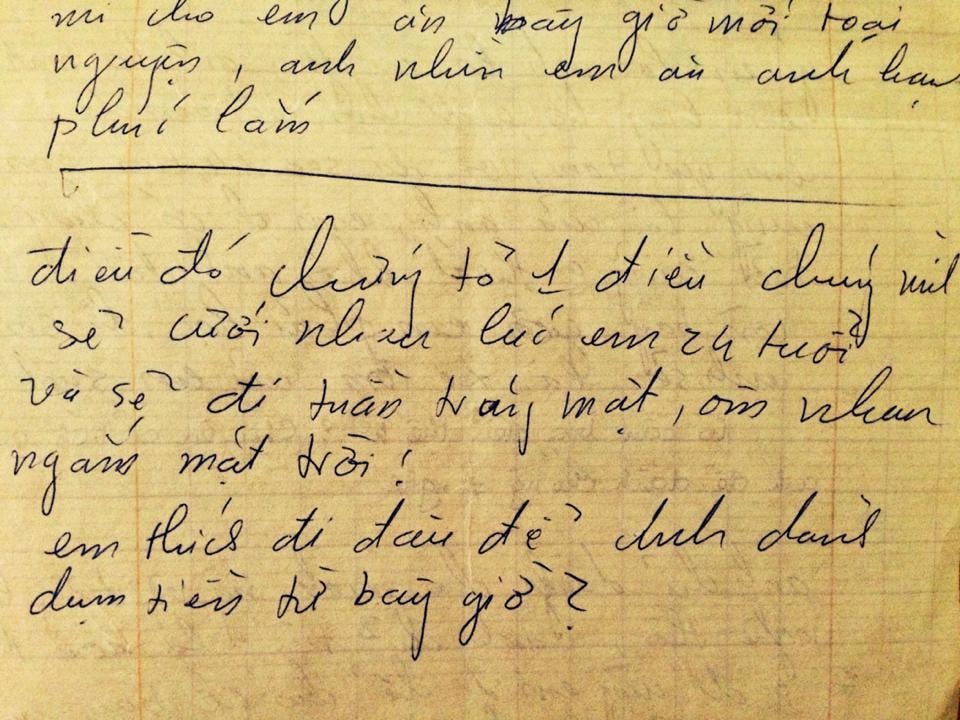 mì cho em ăn bây giờ mới toại
nguyện, anh nhìn em ăn anh hạnh
phúc lắm
điều đó chứng tỏ 1 điều chúng mình
sẽ cưới nhau lúc em 24 tuổi
và sẽ đi tuần trăng mật, ôm nhau
ngắm mặt trời!
em thích đi đâu để anh dành
dụm tiền từ bây giờ?